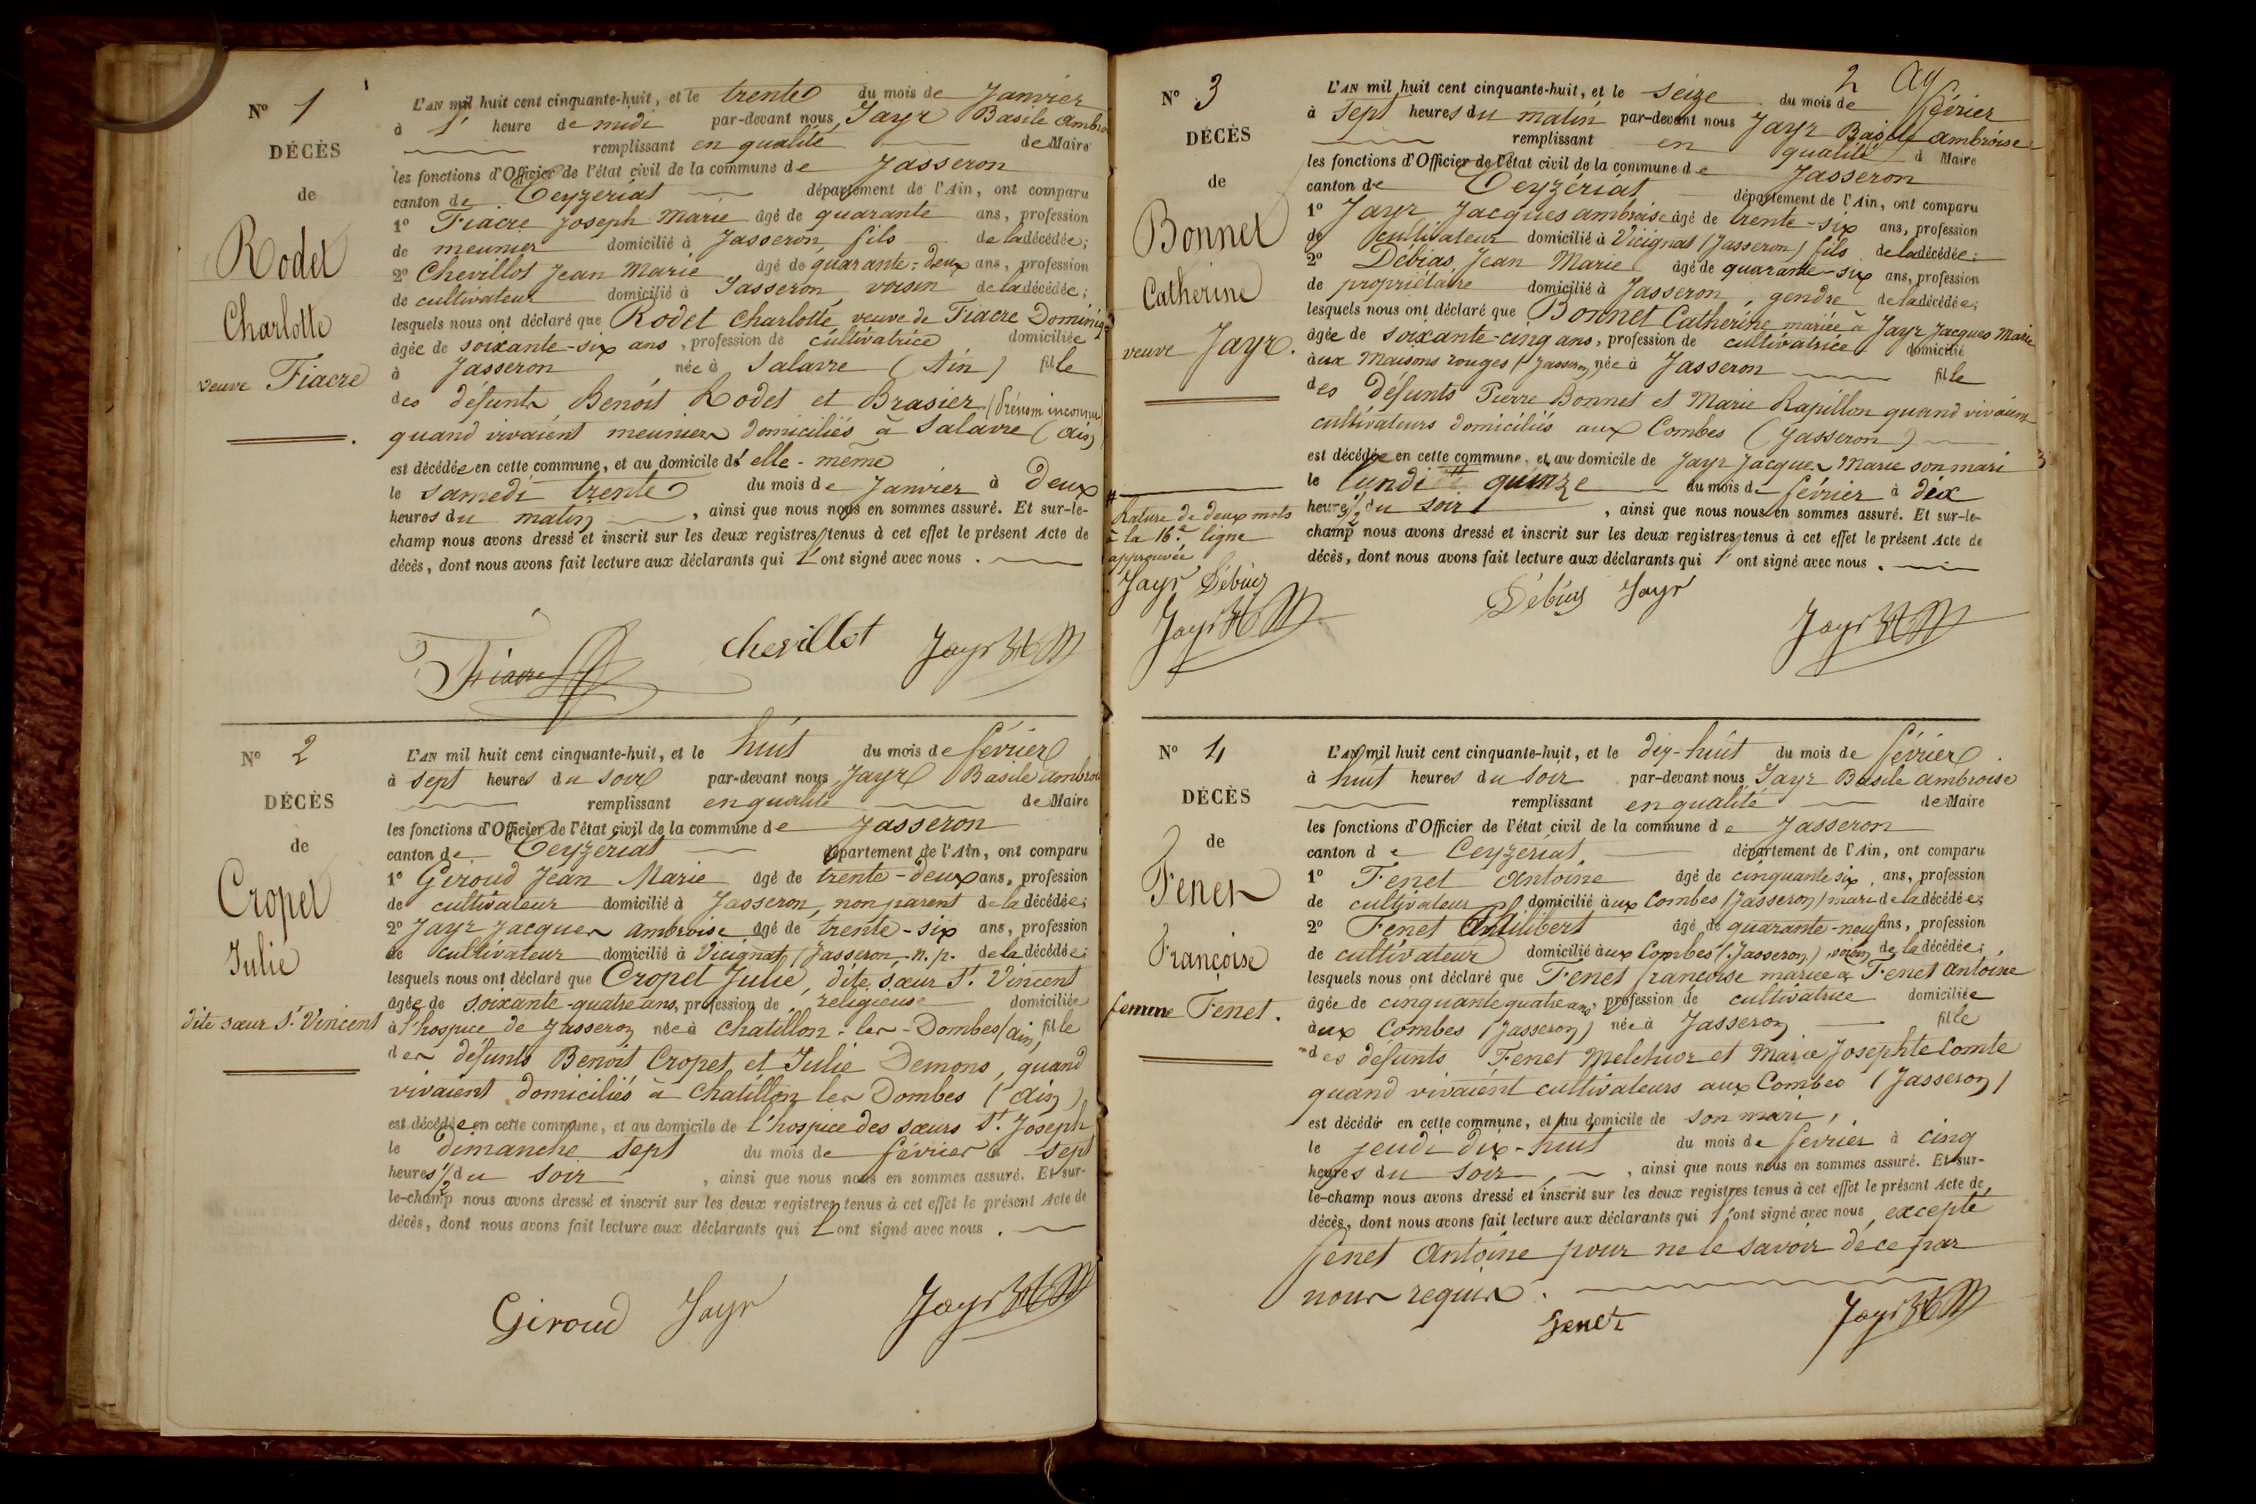 N° 1
DÉCÈS
de
Rodet
Charlotte
veuve Fiacre
L'AN mil huit cent cinquante-huit, et le trente du mois de Janvier
à 1 heure de midi par-devant nous Jayr Basile Ambro
remplissant en qualité de Maire
les fonctions d'Officier de l'état civil de la commune de Jasseron
canton de Ceyzeriat département de l'Ain, ont comparu
1° Fiacre Joseph Marie âgé de quarante ans, profession
de meunier domicilié à Jasseron fils de la décédée;
2° Chevillot Jean Marie âgé de quarante-deux ans, profession
de cultivateur domicilié à Jasseron voisin de la décédée;
lesquels nous ont déclaré que Rodet Charlotte veuve de Fiacre Dominiq
âgée de soixante-six ans, profession de cultivatrice domiciliée
à Jasseron née à Salavre (Ain) fille
des défunts Benoît Rodet et Brasier (Prénom inconnu
quand vivaient meuniers domiciliés à Salavre (Ain)
est décédée en cette commune, et au domicile d'elle-même
le samedi trente du mois de Janvier à Deux
heures du matin, ainsi que nous nous en sommes assuré. Et sur-le-
champ nous avons dressé et inscrit sur les deux registres tenus à cet effet le présent Acte de
décès, dont nous avons fait lecture aux déclarants qui l'ont signé avec nous.
Fiacre Chevillot Jayr
N° 2
DÉCÈS
de
Cropet
Julie
dite sœur St Vincent
L'AN mil huit cent cinquante-huit, et le huit du mois de février
à sept heures du soir par-devant nous Jayr Basile Ambroi
remplissant en qualité de Maire
les fonctions d'Officier de l'état civil de la commune de Jasseron
canton de Ceyzériat département de l'Ain, ont comparu
1° Giroud Jean Marie âgé de trente-deux ans, profession
de cultivateur domicilié à Jasseron, non parent de la décédée;
2° Jayr Jacques Ambroise âgé de trente-six ans, profession
de cultivateur domicilié à Vicignat (Jasseron n. p. de la décédée;
lesquels nous ont déclaré que Cropet Julie, dite sœur St Vincent
âgée de soixante-quatre ans, profession de religieuse domiciliée
à l'hospice de Jasseron née à Chatillon-les-Dombes (Ain) fille
des défunts Benoit Cropet et Julie Demons, quand
vivaient domiciliés à Chatillon les Dombes (Ain)
est décédée en cette commune, et au domicile de l'hospice des sœurs St Joseph
le dimanche sept du mois de février à sept
heures 1/2 du soir, ainsi que nous nous en sommes assuré. Et sur-
le-champ nous avons dressé et inscrit sur les deux registres tenus à cet effet le présent Acte de
décès, dont nous avons fait lecture aux déclarants qui l'ont signé avec nous.
Giroud Jayr Jayr
2
N° 3
DÉCÈS
de
Bonnet
Catherine
veuve Jayr.
Rature de deux mots
à la 16e ligne
approuvée
Jayr Débias
Jayr
L'AN mil huit cent cinquante-huit, et le seize du mois de février
à sept heures du matin par-devant nous Jayr Basile Ambroise
remplissant en qualité d Maire
les fonctions d'Officier de l'état civil de la commune de Jasseron
canton de Ceyzériat département de l'Ain, ont comparu
1° Jayr Jacques Ambroise âgé de trente-six ans, profession
de cultivateur domicilié à Vicignat (Jasseron) fils de la décédée;
2° Débias Jean Marie âgé de quarante-six ans, profession
de propriétaire domicilié à Jasseron, gendre de la décédée;
lesquels nous ont déclaré que Bonnet Catherine mariée à Jayr Jacques Marie
âgée de soixante-cinq ans, profession de cultivatrice domicilié
aux Maisons rouges (Jasseron) née à Jasseron fille
des défunts Pierre Bonnet et Marie Rapillon quand vivaient
cultivateurs domiciliés aux Combes (Jasseron)
est décédée en cette commune, et au domicile de Jayr Jacques Marie son mari
le lundi quinze du mois de février à dix
heures 1/2 du soir, ainsi que nous nous en sommes assuré. Et sur-le-
champ nous avons dressé et inscrit sur les deux registres tenus à cet effet le présent Acte de
décès, dont nous avons fait lecture aux déclarants qui l'ont signé avec nous.
Débias Jayr
Jayr
N° 4
DÉCÈS
de
Fenet
Françoise
femme Fenet.
L'AN mil huit cent cinquante-huit, et le dix-huit du mois de février
à huit heures du soir par-devant nous Jayr Basile Ambroise
remplissant en qualité de Maire
les fonctions d'Officier de l'état civil de la commune de Jasseron
canton de Ceyzériat département de l'Ain, ont comparu
1° Fenet Antoine âgé de cinquante six ans, profession
de cultivateur domicilié aux Combes (Jasseron) mari de la décédée;
2° Fenet Philibert âgé de quarante-neuf ans, profession
de cultivateur domicilié aux Combes (Jasseron) voisin de la décédée;
lesquels nous ont déclaré que Fenet françoise mariée à Fenet Antoine
âgée de cinquante quatre ans, profession de cultivatrice domiciliée
aux Combes (Jasseron) née à Jasseron fille
des défunts Fenet Melchior et Marie Josephte Comte
quand vivaient cultivateurs aux Combes (Jasseron)
est décédée en cette commune, et au domicile de son mari,
le jeudi dix-huit du mois de février à cinq
heures du soir, ainsi que nous nous en sommes assuré. Et sur-
le-champ nous avons dressé et inscrit sur les deux registres tenus à cet effet le présent Acte de
décès, dont nous avons fait lecture aux déclarants qui l'ont signé avec nous, excepté
Fenet Antoine pour ne le savoir de ce par
nous requis.
Fenet Jayr